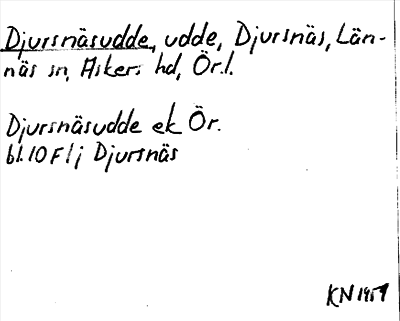 Djursnäsudde, udde, Djursnäs, Län-
näs sn, Askers hd, Ör.l.
Djursnäsudde ek Ör.
bl.10 F1; Djursnäs
KN 1959